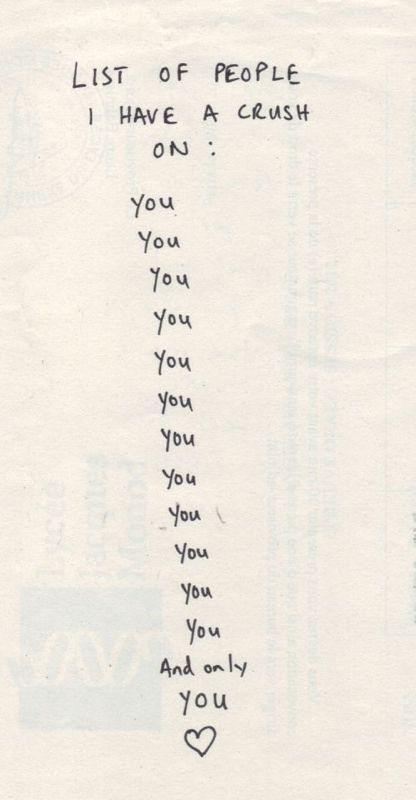 LIST OF PEOPLE
I HAVE A CRUSH
ON :
You
You
You
You
You
You
You
You
You
You
You
You
And only
YOU
♡